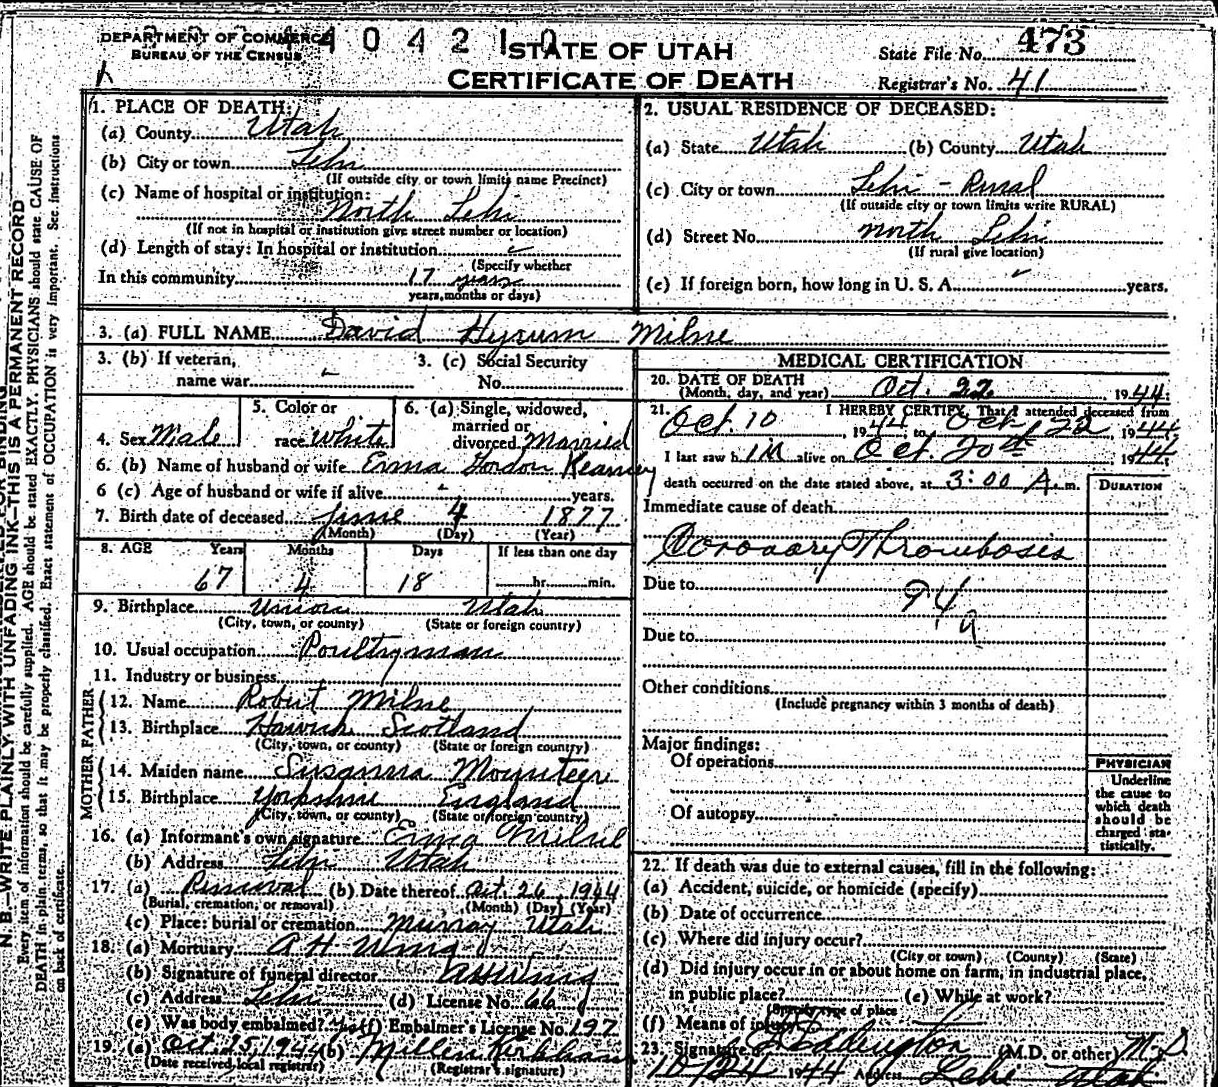 DEPARTMENT OF COMMERCE
BUREAU OF THE CENSUS
404210
STATE OF UTAH
CERTIFICATE OF DEATH
State File No. 473
Registrar's No. 41
N. B.—WRITE PLAINLY WITH UNFADING INK—THIS IS A PERMANENT RECORD
Every item of information should be carefully supplied. AGE should be stated EXACTLY. PHYSICIANS should state CAUSE OF
DEATH in plain terms, so that it may be properly classified. Exact statement of OCCUPATION is very important. See instructions
on back of certificate.
1. PLACE OF DEATH:
(a) County Utah
(b) City or town Lehi
(If outside city or town limits name Precinct)
(c) Name of hospital or institution:
North Lehi
(If not in hospital or institution give street number or location)
(d) Length of stay: In hospital or institution
(Specify whether
In this community 17 years
years, months or days)
2. USUAL RESIDENCE OF DECEASED:
(a) State Utah (b) County Utah
(c) City or town Lehi - Rural
(If outside city or town limits write RURAL)
(d) Street No. North Lehi
(If rural give location)
(e) If foreign born, how long in U. S. A. years.
3. (a) FULL NAME David Hyrum Milne
3. (b) If veteran,
name war
3. (c) Social Security
No.
4. Sex Male
5. Color or
race White
6. (a) Single, widowed,
married or
divorced Married
6. (b) Name of husband or wife Erma Gordon Kearney
6 (c) Age of husband or wife if alive years.
7. Birth date of deceased June 4 1877
(Month) (Day) (Year)
8. AGE Years Months Days If less than one day
67 4 18 hr. min.
9. Birthplace Union Utah
(City, town, or county) (State or foreign country)
10. Usual occupation Poultryman
11. Industry or business
FATHER
12. Name Robert Milne
13. Birthplace Scotland
(City, town, or county) (State or foreign country)
MOTHER
14. Maiden name Susanna
15. Birthplace Yorkshire England
(City, town, or county) (State or foreign country)
16. (a) Informant's own signature Erma Milne
(b) Address Lehi Utah
17. (a) Removal (b) Date thereof Oct. 26 1944
(Burial, cremation, or removal) (Month) (Day) (Year)
(c) Place: burial or cremation Murray Utah
18. (a) Mortuary A H Wing
(b) Signature of funeral director AH Wing
(c) Address Lehi (d) License No. 66
(e) Was body embalmed? Yes (f) Embalmer's License No. 197
19. (a) Oct. 25, 1944 (b) Millen Kirkham
(Date received local registrar) (Registrar's signature)
MEDICAL CERTIFICATION
20. DATE OF DEATH
(Month, day, and year) Oct. 22, 1944.
21. I HEREBY CERTIFY, That I attended deceased from
Oct. 10, 1944 to Oct. 22, 1944
I last saw h im alive on Oct. 20th 1944
death occurred on the date stated above, at 3:00 A. m.
DURATION
Immediate cause of death
Coronary Thrombosis
Due to 94a
Due to
Other conditions
(Include pregnancy within 3 months of death)
Major findings:
Of operations
Of autopsy
PHYSICIAN
Underline
the cause to
which death
should be
charged sta-
tistically.
22. If death was due to external causes, fill in the following:
(a) Accident, suicide, or homicide (specify)
(b) Date of occurrence
(c) Where did injury occur?
(City or town) (County) (State)
(d) Did injury occur in or about home on farm, in industrial place,
in public place? (e) While at work?
(Specify type of place
(f) Means of injury
23. Signature Eddington (M.D. or other) M.D.
10/24 1944 Address Lehi Utah